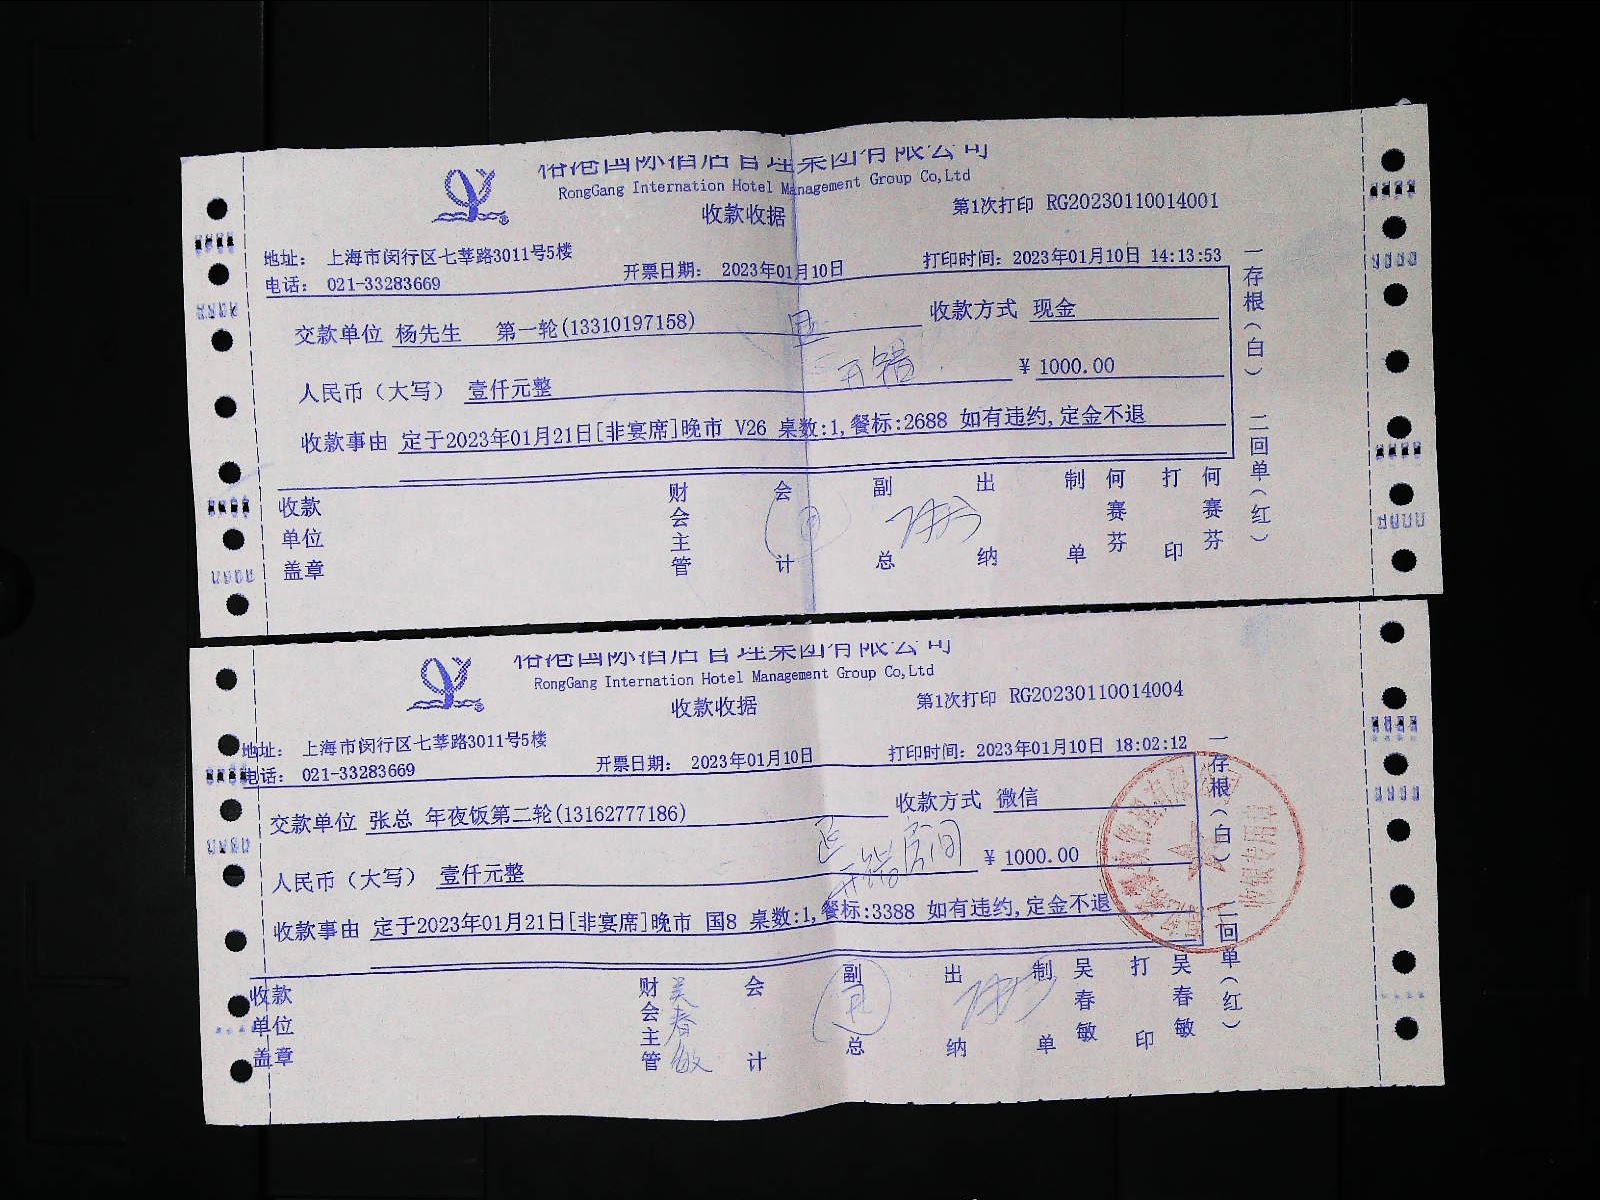 国际酒店管理集团有限公司
RongGang Internation Hotel Management Group Co,Ltd
收款收据
第1次打印 RG20230110014001
地址： 上海市闵行区七莘路3011号5楼
电话： 021-33283669
开票日期： 2023年01月10日
打印时间：2023年01月10日 14:13:53
交款单位 杨先生 第一轮(13310197158)
收款方式 现金
人民币（大写） 壹仟元整
开错
¥ 1000.00
收款事由 定于2023年01月21日[非宴席]晚市 V26 桌数:1,餐标:2688 如有违约,定金不退
收款单位盖章
财会主管
会计
副总
出纳
制单
何赛芬
打印
何赛芬
一存根（白） 二回单（红）
国际酒店管理集团有限公司
RongGang Internation Hotel Management Group Co,Ltd
收款收据
第1次打印 RG20230110014004
地址： 上海市闵行区七莘路3011号5楼
电话： 021-33283669
开票日期： 2023年01月10日
打印时间：2023年01月10日 18:02:12
交款单位 张总 年夜饭第二轮(13162777186)
收款方式 微信
人民币（大写） 壹仟元整
开错房间
¥ 1000.00
收款事由 定于2023年01月21日[非宴席]晚市 国8 桌数:1,餐标:3388 如有违约,定金不退
收款单位盖章
财会主管
吴春敏
会计
副总
出纳
制单
吴春敏
打印
吴春敏
一存根（白） 二回单（红）
收银专用章